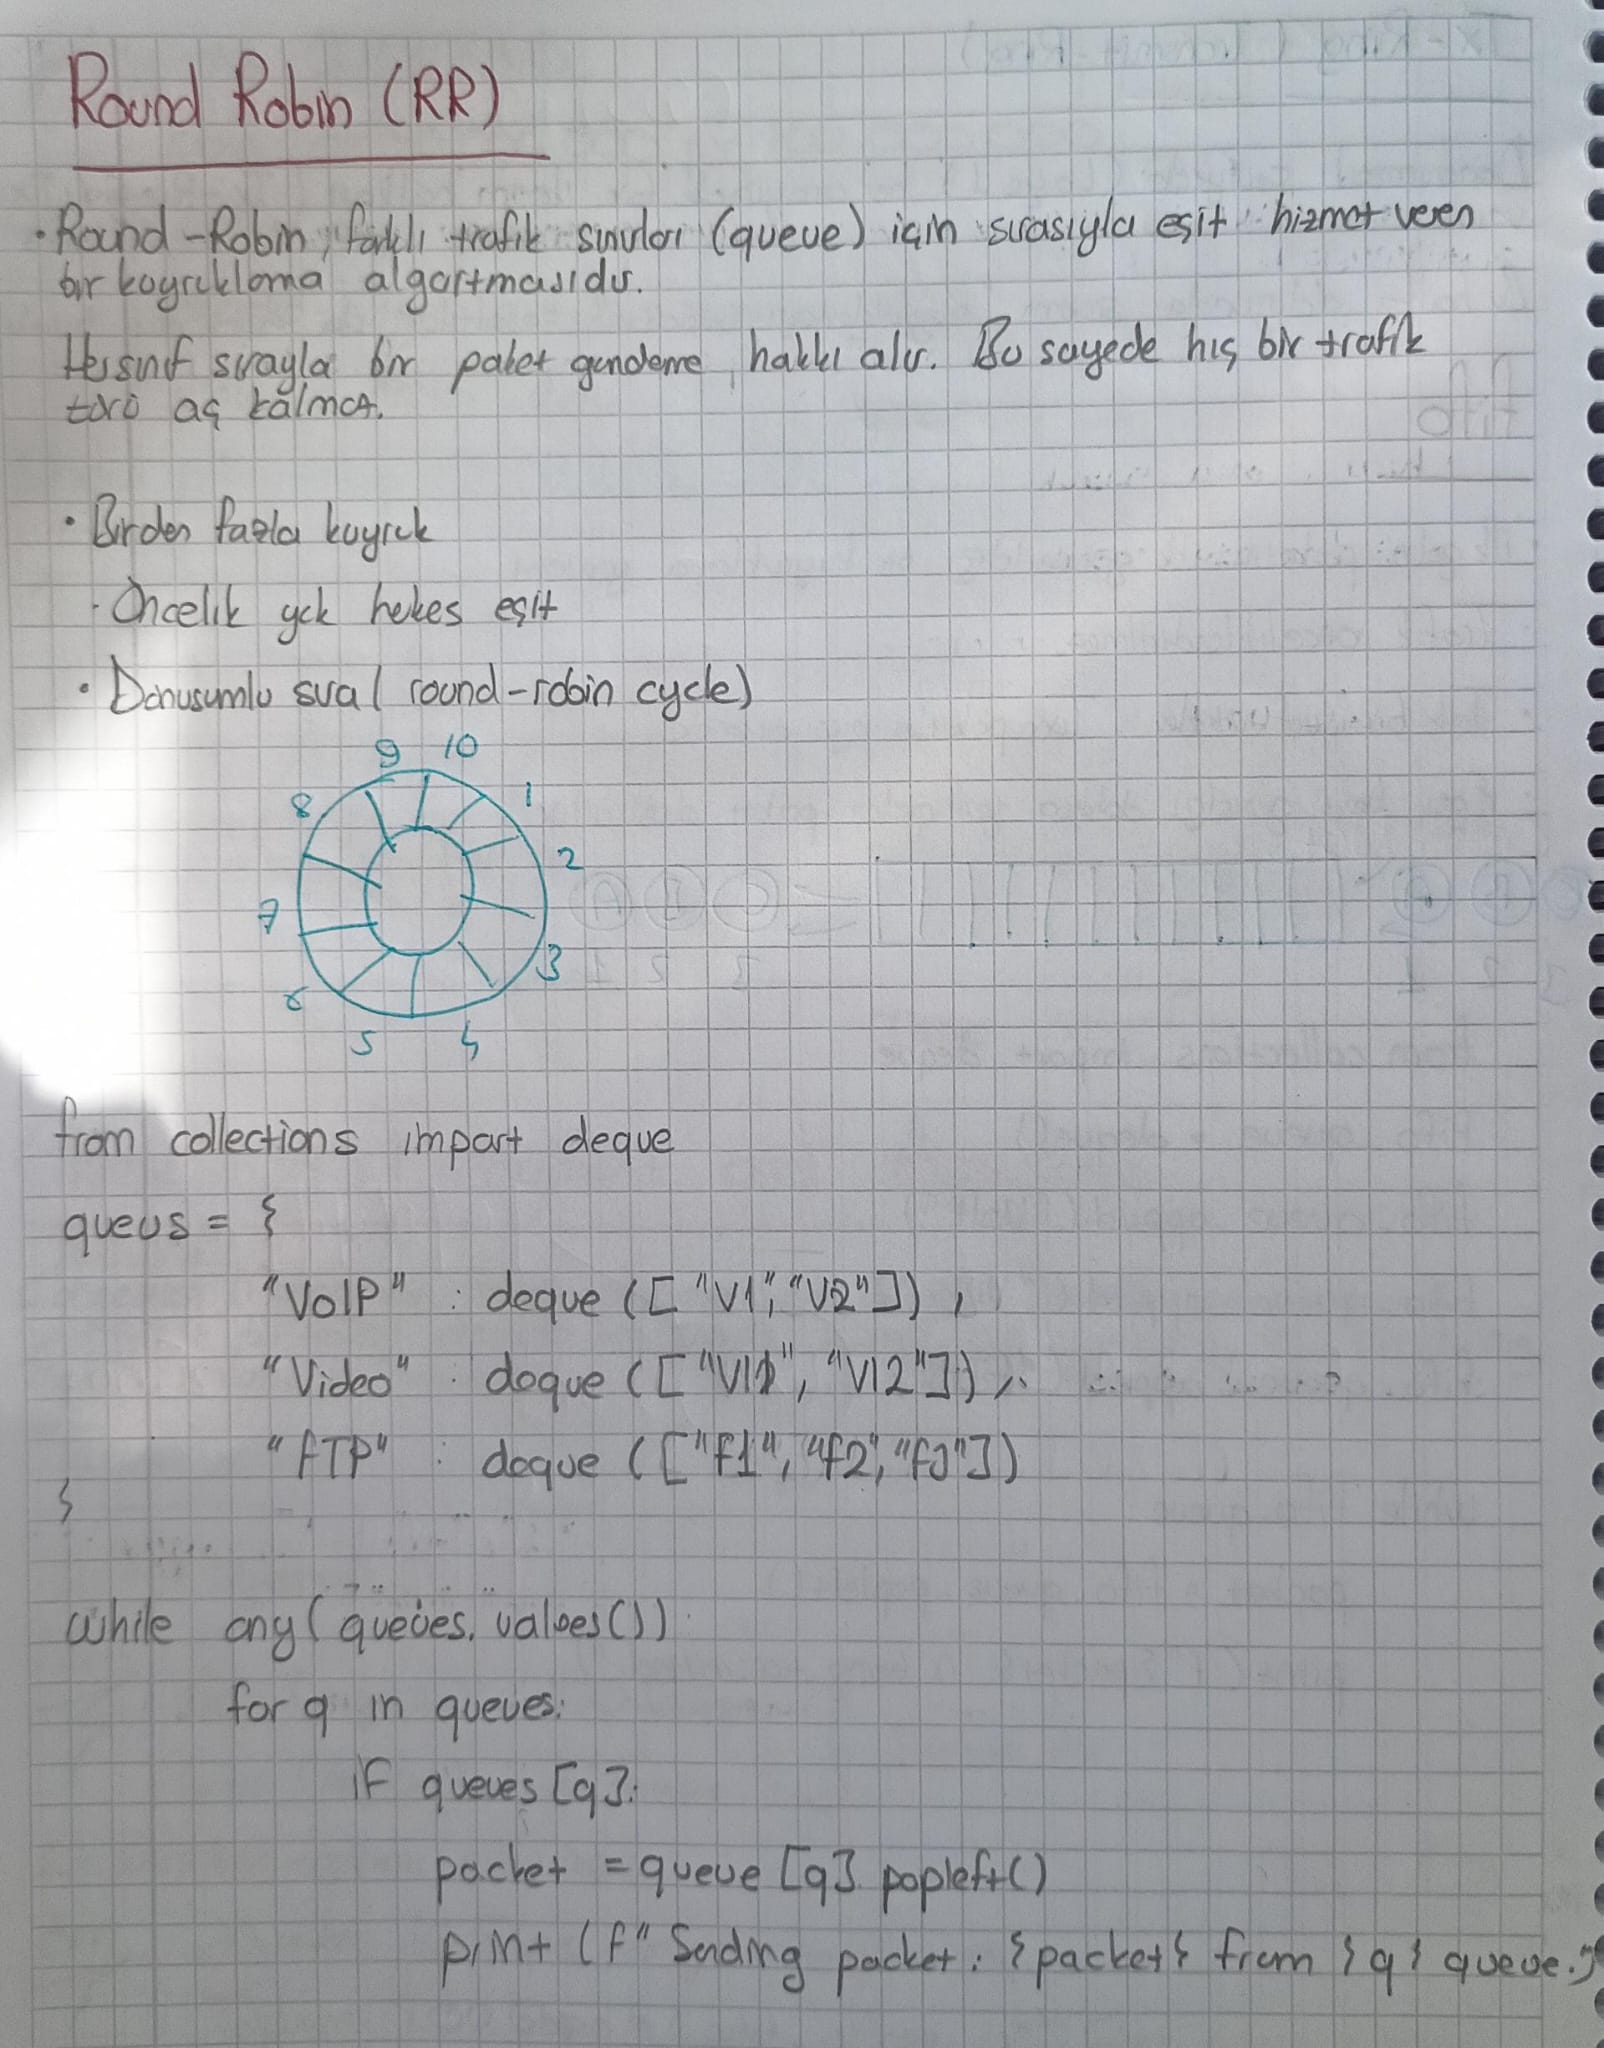 Round Robin (RR)
• Round-Robin, farklı trafik sınıfları (queue) için sırasıyla eşit hizmet veren
bir kuyruklama algoritmasıdır.
Her sınıf sırayla bir paket gönderme hakkı alır. Bu sayede hiç bir trafik
türü aç kalmaz.
• Birden fazla kuyruk
· Öncelik yok hekes eşit
• Donusumlu sıra ( round-robin cycle)
9 10
8 1
2
7
3
6
5 4
from collections import deque
queus = {
"VoIP" : deque (["V1", "V2"]) ,
"Video" : deque (["VI1", "VI2"]) ,
"FTP" : deque (["F1", "f2", "f3"])
}
while any( queues. values())
for q in queues:
if queues [q]:
packet = queue [q] popleft()
print (f" Sending packet : {packet} from {q} queue.")